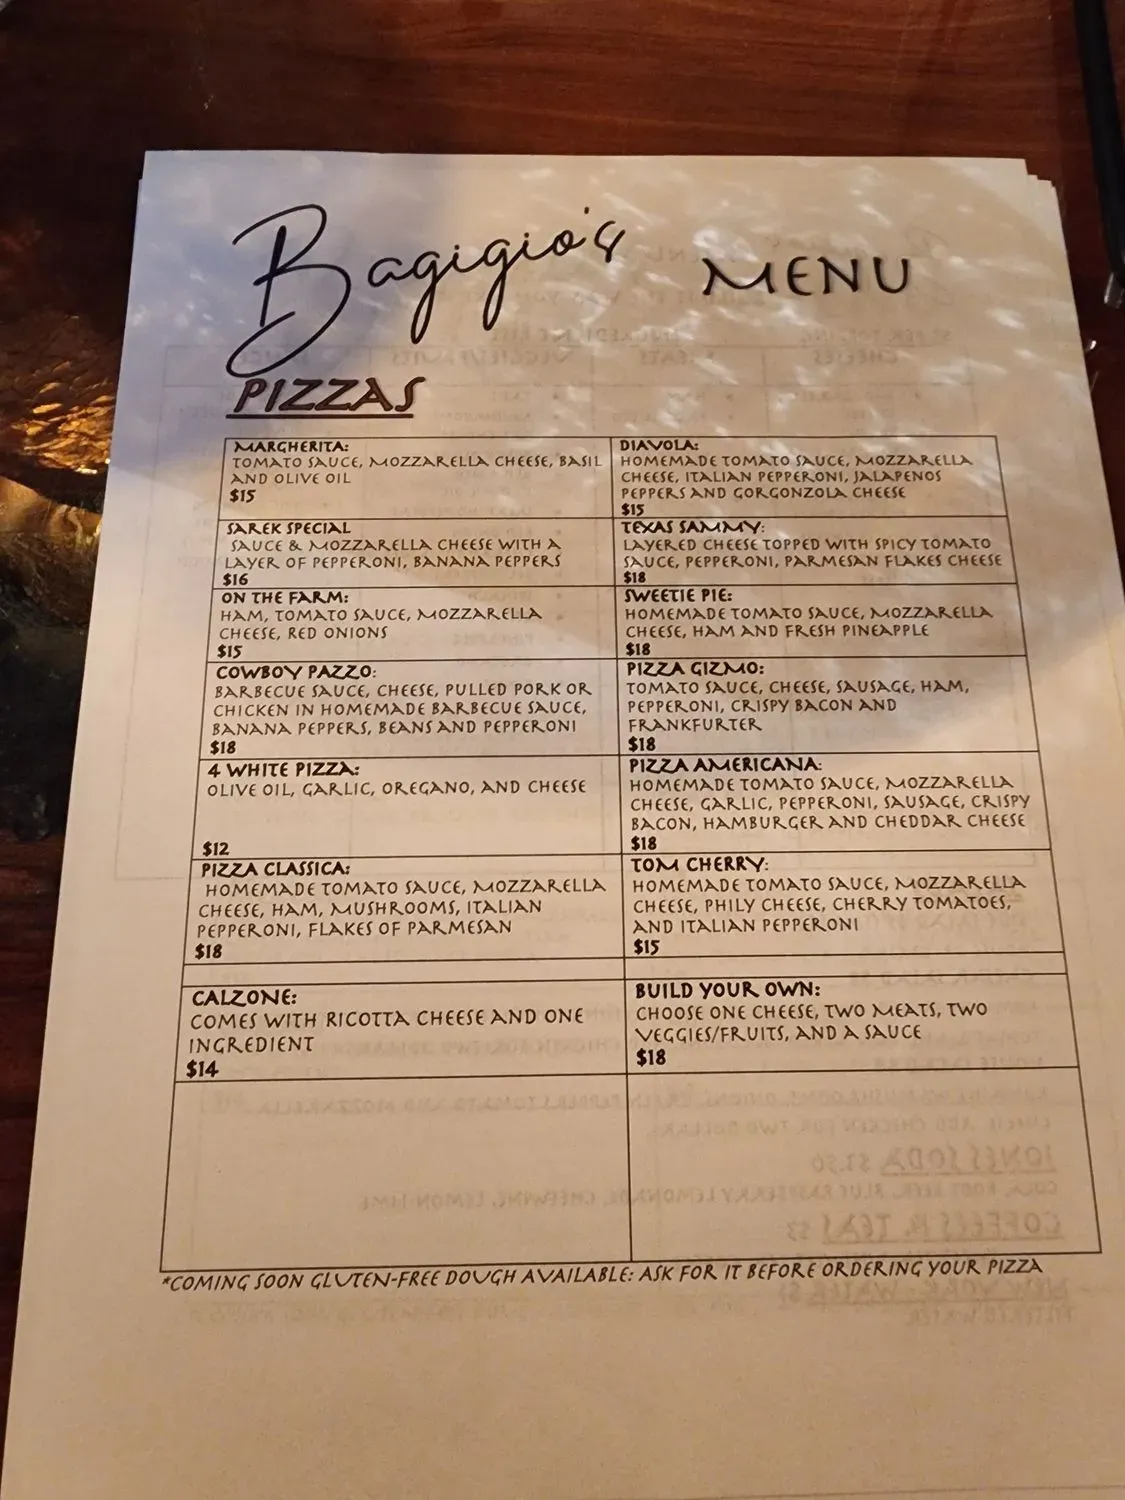 Bagigio's MENU
PIZZAS
MARGHERITA:
TOMATO SAUCE, MOZZARELLA CHEESE, BASIL
AND OLIVE OIL
$15
DIAVOLA:
HOMEMADE TOMATO SAUCE, MOZZARELLA
CHEESE, ITALIAN PEPPERONI, JALAPENOS
PEPPERS AND GORGONZOLA CHEESE
$15
SAREK SPECIAL
SAUCE & MOZZARELLA CHEESE WITH A
LAYER OF PEPPERONI, BANANA PEPPERS
$16
TEXAS SAMMY:
LAYERED CHEESE TOPPED WITH SPICY TOMATO
SAUCE, PEPPERONI, PARMESAN FLAKES CHEESE
$18
ON THE FARM:
HAM, TOMATO SAUCE, MOZZARELLA
CHEESE, RED ONIONS
$15
SWEETIE PIE:
HOMEMADE TOMATO SAUCE, MOZZARELLA
CHEESE, HAM AND FRESH PINEAPPLE
$18
COWBOY PAZZO:
BARBECUE SAUCE, CHEESE, PULLED PORK OR
CHICKEN IN HOMEMADE BARBECUE SAUCE,
BANANA PEPPERS, BEANS AND PEPPERONI
$18
PIZZA GIZMO:
TOMATO SAUCE, CHEESE, SAUSAGE, HAM,
PEPPERONI, CRISPY BACON AND
FRANKFURTER
$18
4 WHITE PIZZA:
OLIVE OIL, GARLIC, OREGANO, AND CHEESE
$12
PIZZA AMERICANA:
HOMEMADE TOMATO SAUCE, MOZZARELLA
CHEESE, GARLIC, PEPPERONI, SAUSAGE, CRISPY
BACON, HAMBURGER AND CHEDDAR CHEESE
$18
PIZZA CLASSICA:
HOMEMADE TOMATO SAUCE, MOZZARELLA
CHEESE, HAM, MUSHROOMS, ITALIAN
PEPPERONI, FLAKES OF PARMESAN
$18
TOM CHERRY:
HOMEMADE TOMATO SAUCE, MOZZARELLA
CHEESE, PHILY CHEESE, CHERRY TOMATOES,
AND ITALIAN PEPPERONI
$15
CALZONE:
COMES WITH RICOTTA CHEESE AND ONE
INGREDIENT
$14
BUILD YOUR OWN:
CHOOSE ONE CHEESE, TWO MEATS, TWO
VEGGIES/FRUITS, AND A SAUCE
$18
*COMING SOON GLUTEN-FREE DOUGH AVAILABLE: ASK FOR IT BEFORE ORDERING YOUR PIZZA